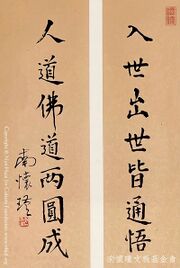 入世出世皆通悟
人道佛道兩圓成
南懷瑾
南懷瑾文教基金會